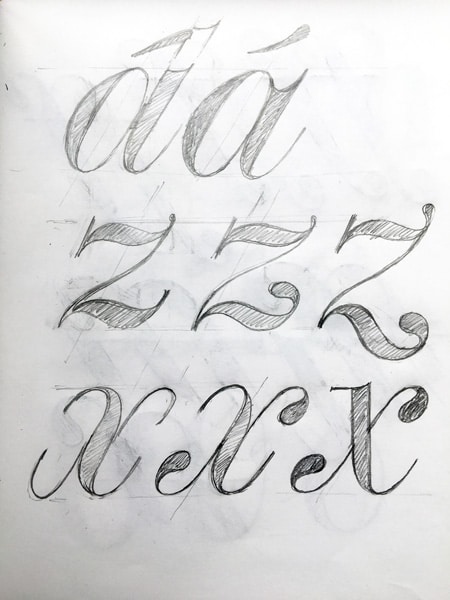 dá
z z z
x x x